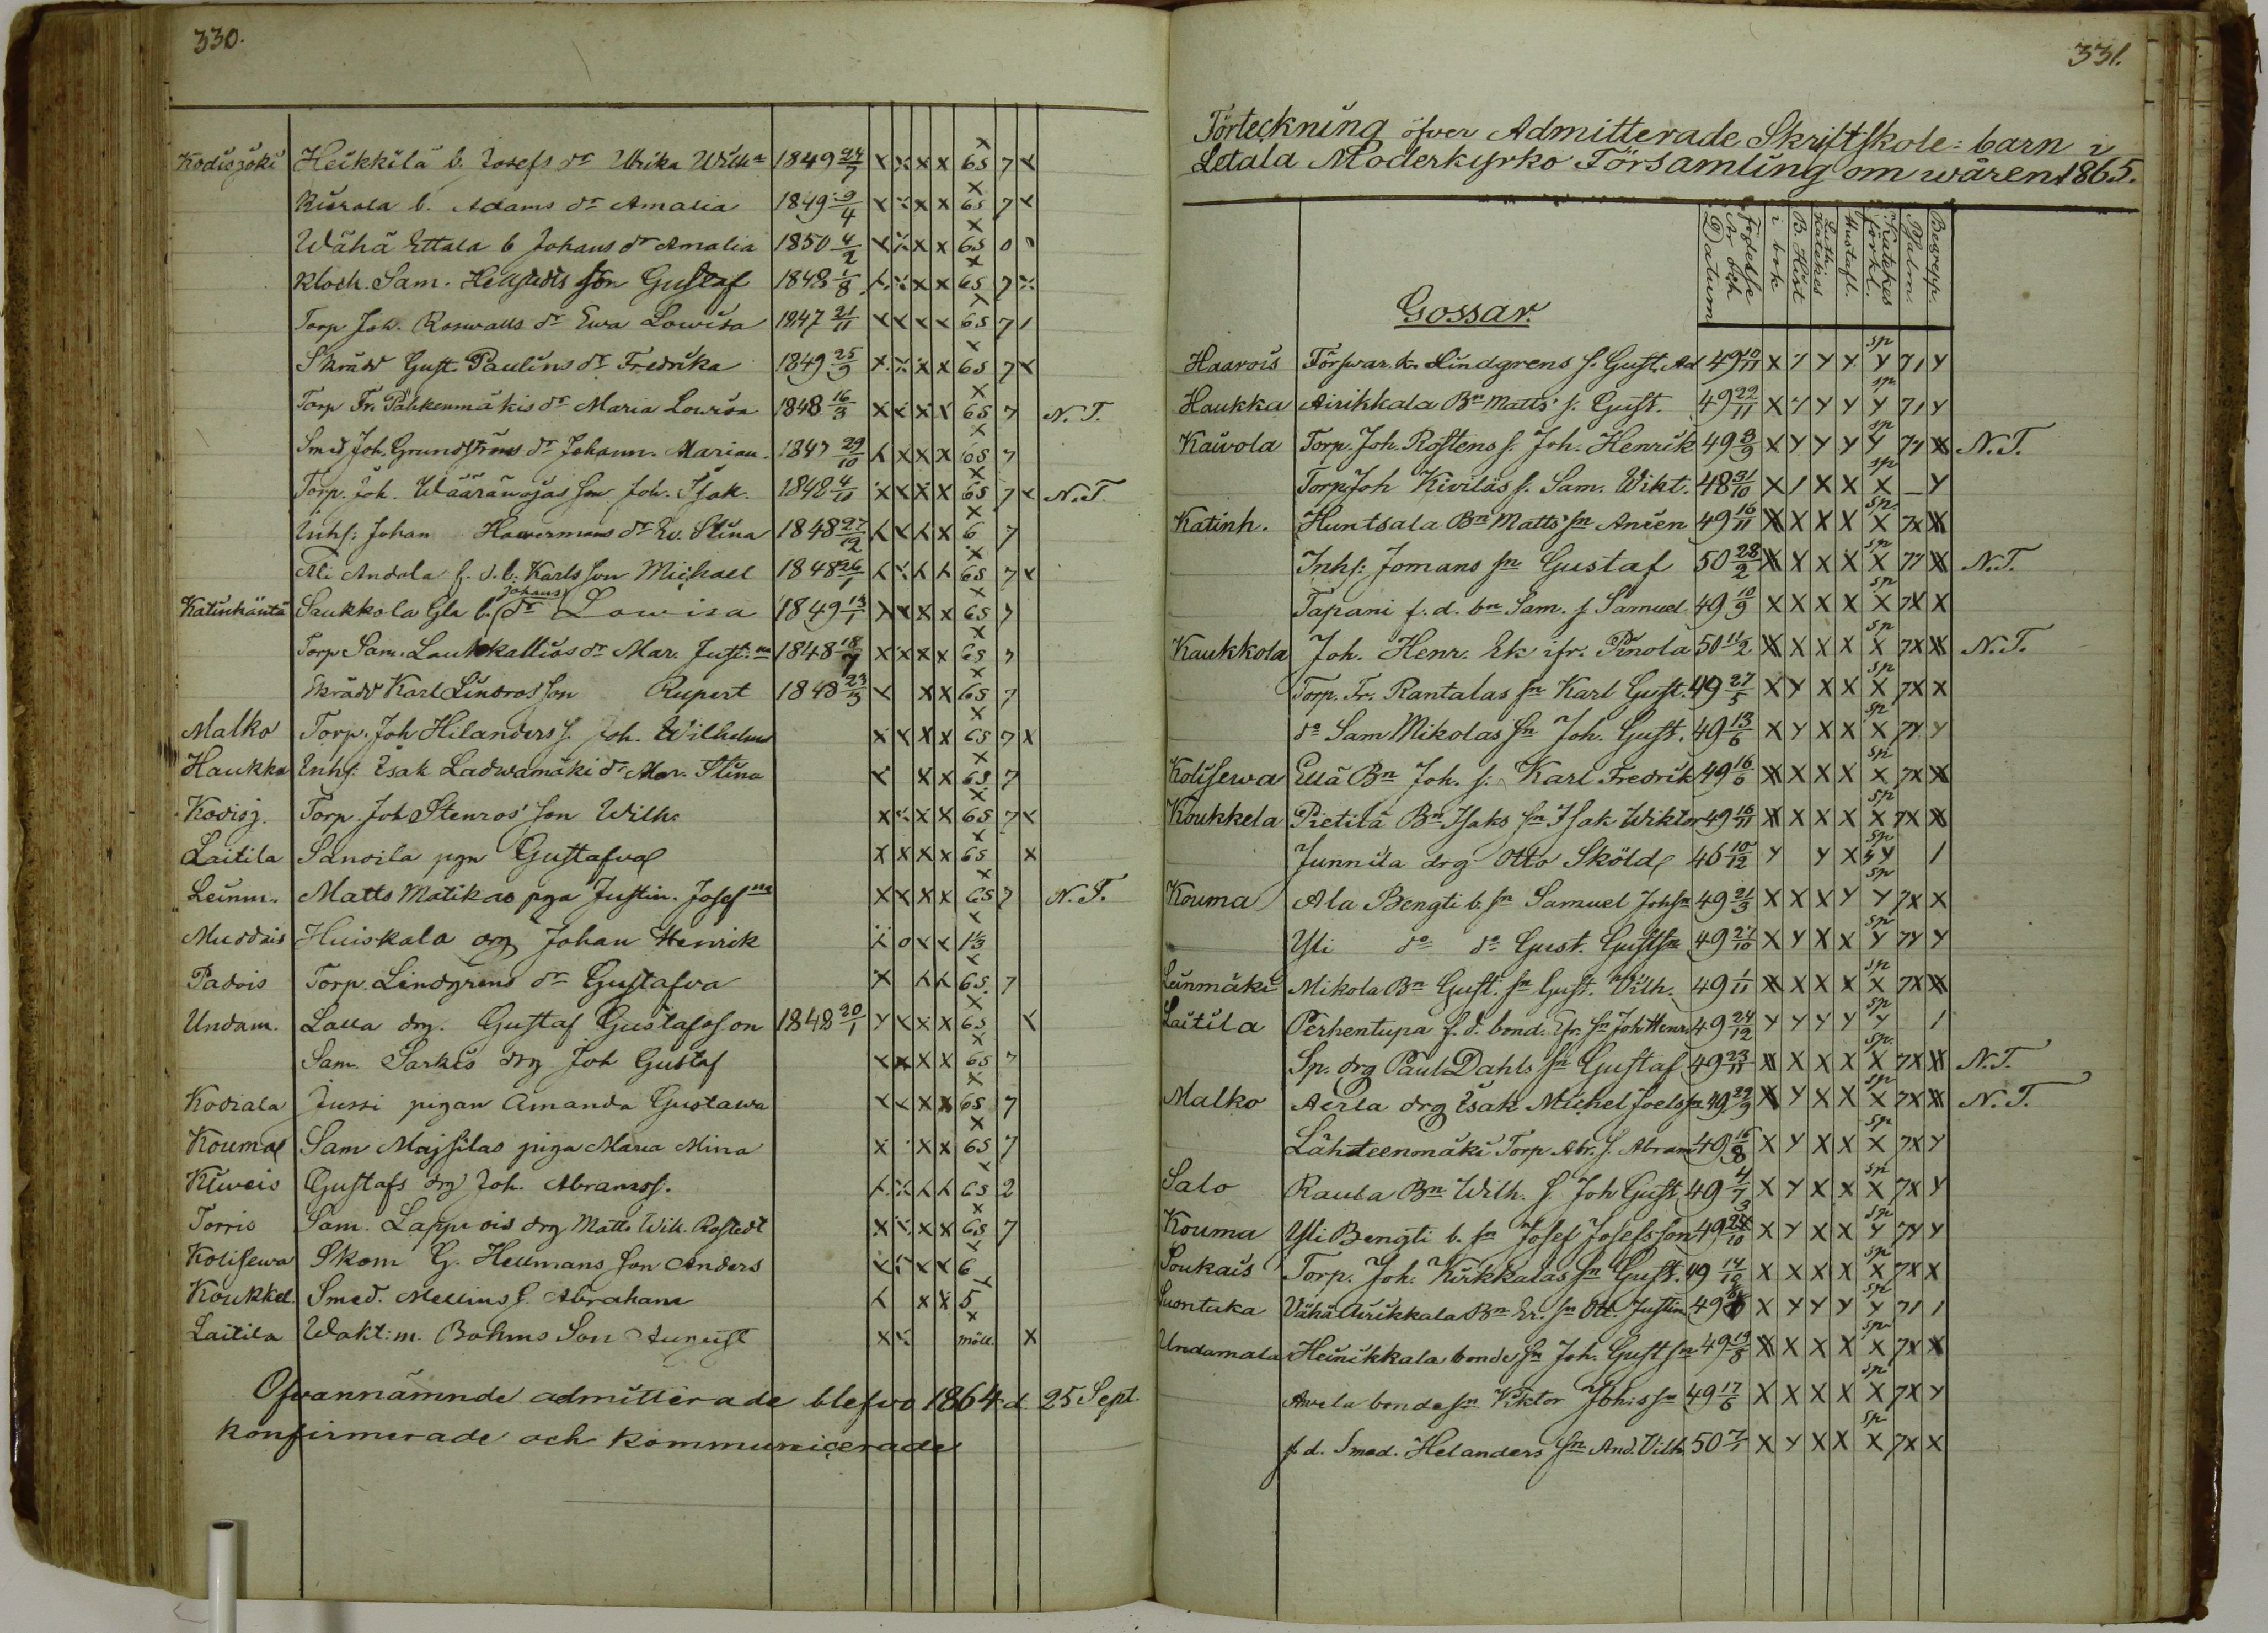 330.
Kodisjoki Heikkilä b. Josefs dr Ulrika Wilh:a 1849 24/7 x x x x 65 7 x
Kurala b. Adams dr Amalia 1849 9/4 x x x x 65 7 x
Wähä Ettala b Johans dr Amalia 1850 4/2 x x x x 65 0 0
Klock. Sam. Hellstedts son Gustaf 1848 1/8 x x x x 65 7
Torp Joh. Roswalls dr Ewa Lowisa 1847 21/11 x x x x 65 7 1
Skrädd Gust. Paulins dr Fredrika 1849 25/9 x x x x 65 7 x
Torp Fr. Pahkenmäkis dr Maria Lowisa 1848 16/3 x x x x 65 7 N. T.
Smed Joh. Grundströms dr Johann. Marian. 1847 29/10 x x x x 65 7
Torp. Joh. Wääräwojas son Joh. Isak. 1848 4/11 x x x x 65 7 x N. T.
Inhs: Johan Hawermans dr Ev. Stina 1848 27/12 x x x x 6 7
Ali Andola f. d. b. Karls son Michael 1848 26/1 x x x x 65 7 x
Katinhäntä Saukkola Gla b. Johans dr Lowisa 1849 13/1 x x x x 65 7
Torp Sam. Laukkallios dr Mar. Just:na 1848 18/7 x x x x 65 7
Skrädd Karl Lindros son Rupert 1848 23/3 x x x 65 7
Malko Torp. Joh Hilanders s. Joh. Wilhelm x x x x 65 7 x
Haukka Inhs. Isak Ladwamäki dr Mar. Stina x x x 65 7
Kodisj. Torp. Joh Stenros' son Wilh: x x x x 65 7 x
Laitila Sanoila pgn Gustafva x x x x 65 x
Leinm. Matts Matikas pga Justin. Josef:na x x x x 65 7 N. T.
Muddais Huiskala drg Johan Henrik x o x x 1/3
Padois Torp. Lindgrens dr Gustafva x x x 65. 7
Undam. Lalla drg. Gustaf Gustafsson 1848 20/1 x x x x 65 x
Sam. Sarkis drg Joh Gustaf x x x x 65 7
Kodiala Jussi pigan Amanda Gustawa x x x x 65 7
Kouma Sam Majsilas piga Maria Mina x x x 65 7
Kiweis Gustafs drg Joh. Abramss. x x x x 65 2
Torris Sam. Lappwois drg Matts Wilh. Rostedt x x x x 65 7
Kolisewa Skom G. Hellmans son Anders x x x x 6
Koukkel. Smed. Mellins s. Abraham x x x 5
Laitila Wakt:m. Bohms Son August x x x
Ofvannämnde admitterade blefvo 1864 d 25 Sept
konfirmerade och kommunicerade
331.
Förteckning öfver Admitterade Skriftskole-barn i
Letala Moderkyrko Församling om wåren 1865.
Födelse År och Datum i bok B. Hist Luth. Katekes Hustafl. Katekes förkl. Psalm. Begrepp.
Gossar.
Haarois Förswar. k. Lindgrens s. Gust. Ad 49 10/11 x y y y sp y 7 1 y
Haukka Airikkala Bn Matts' s. Gust. 49 22/11 x y y y sp y 7 1 y
Kaivola Torp. Joh. Rostens s. Joh. Henrik 49 3/9 x y y y sp y 7 y x N. T.
Torp Joh Kiviläs s. Sam. Wikt. 48 31/10 x 1 x x sp x — y
Katinh. Huntsala Bn Matts' sn Anien 49 16/11 x x x x sp. x 7 x x
Inhs: Jomans sn Gustaf 50 28/2 x x x x sp x 7 y x N. T.
Tapani f. d. bn Sam. s Samuel 49 10/9 x x x x sp x 7 x x
Kaukkola Joh. Henr. Ek ifr. Pinola 50 11/2 x x x x sp x 7 x x N. T.
Torp. Fr. Rantalas sn Karl Gust. 49 27/5 x y x x sp x 7 x x
do Sam Mikolas sn Joh. Gust. 49 13/6 x y x x sp x 7 y y
Kolisewa Ellä Bn Joh. s. Karl Fredrik 49 16/6 x x x x sp x 7 x x
Koukkela Pietilä Bn Isaks sn Isak Wiktor 49 16/11 x x x x sp x 7 x x
Junnila drg Otto Sköld 46 10/12 y y x sp y 1
Kouma Ala Bengti b. sn Samuel Johsn 49 21/3 x x x y sp y 7 x x
Yli do do Gust. Gustsn 49 27/10 x y x x sp y 7 y y
Leinmäki Mikola Bn Gust. sn Gust. Vilh. 49 1/11 x x x x sp x 7 x x
Laitila Perhentupa f. d. bond. Efr. sn Joh Henr. 49 24/12 y y y y sp y 1
Sp. drg Paul Dahls sn Gustaf 49 23/11 x x x x sp. x 7 x x N. T.
Malko Aerla drg Isak Michel Joels sn 49 29/9 x y x x sp x 7 x x N. T.
Lähteenmäki Torp. Abr. s. Abram 49 16/8 x y x x sp x 7 x y
Salo Raula Bn Wilh. s. Joh Gust. 49 4/7 x y x x sp x 7 x y
Kouma Yli Bengti b. sn Josef Josefsson 49 /10 x y x x sp y 7 y y
Soukais Torp. Joh. Kirkkalas sn Gust. 49 14/12 x x x x sp x 7 x x
Suontaka Vähä Airikkala Bn Er. sn Ott. Justin 49 x y y y sp y 7 1 1
Undamala Heinikkala bonde sn Joh. Gustsn 49 19/8 x x x x sp x 7 x x
Anvela bonde sn Viktor Johssn 49 17/6 x x x x sp x 7 x y
f. d. Smed. Helanders sn And. Vilh. 50 7/1 x y x x sp x 7 x x